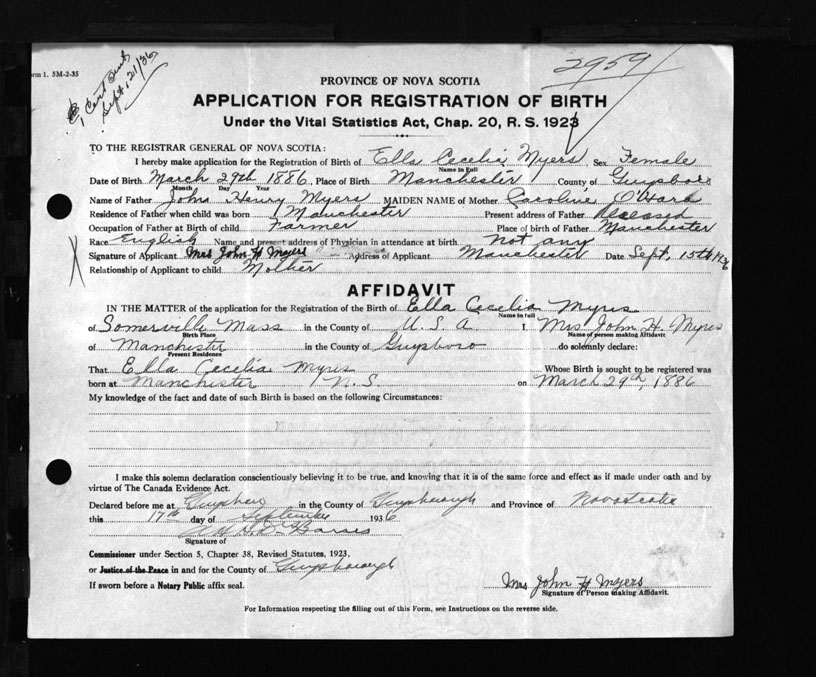 orm 1. 5M-2-35
1 Cert Sent
Sept. 21/36
2959
PROVINCE OF NOVA SCOTIA
APPLICATION FOR REGISTRATION OF BIRTH
Under the Vital Statistics Act, Chap. 20, R. S. 1923
TO THE REGISTRAR GENERAL OF NOVA SCOTIA:
I hereby make application for the Registration of Birth of Ella Cecelia Myers Sex Female
Name in Full
Date of Birth March 29th 1886, Place of Birth Manchester County of Guysboro
Month Day Year
Name of Father John Henry Myers MAIDEN NAME of Mother Caroline O'Hara
Residence of Father when child was born Manchester Present address of Father Deceased
Occupation of Father at Birth of child Farmer Place of birth of Father Manchester
Race English Name and present address of Physician in attendance at birth Not any
Signature of Applicant Mrs John H Myers Address of Applicant Manchester Date Sept, 15th 1936
Relationship of Applicant to child Mother
AFFIDAVIT
IN THE MATTER of the application for the Registration of the Birth of Ella Cecelia Myres
Name in full
of Somerville Mass in the County of U.S.A. I, Mrs John H. Myres
Birth Place Name of person making Affidavit
of Manchester in the County of Guysboro do solemnly declare:
Present Residence
That Ella Cecelia Myris Whose Birth is sought to be registered was
born at Manchester N.S. on March 29th, 1886
My knowledge of the fact and date of such Birth is based on the following Circumstances:
I make this solemn declaration conscientiously believing it to be true, and knowing that it is of the same force and effect as if made under oath and by
virtue of The Canada Evidence Act.
Declared before me at in the County of Guysborough and Province of Nova Scotia
this 17th day of September 1936
Signature of
Commissioner under Section 5, Chapter 38, Revised Statutes, 1923,
or Justice of the Peace in and for the County of Guysborough
If sworn before a Notary Public affix seal.
Mrs John H Myers
Signature of Person making Affidavit.
For Information respecting the filling out of this Form, see Instructions on the reverse side.